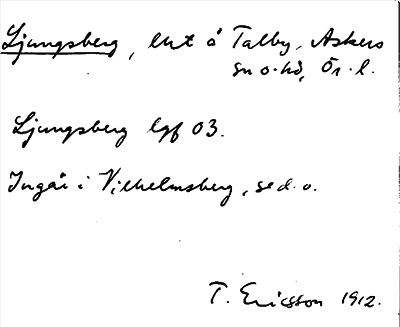 Ljungsberg, lht å Talby, Askers
sn o. hd, Ör. l.
Ljungsberg lgf 03.
Ingår i Vilhelmsberg, se d. o.
T. Ericsson 1912.